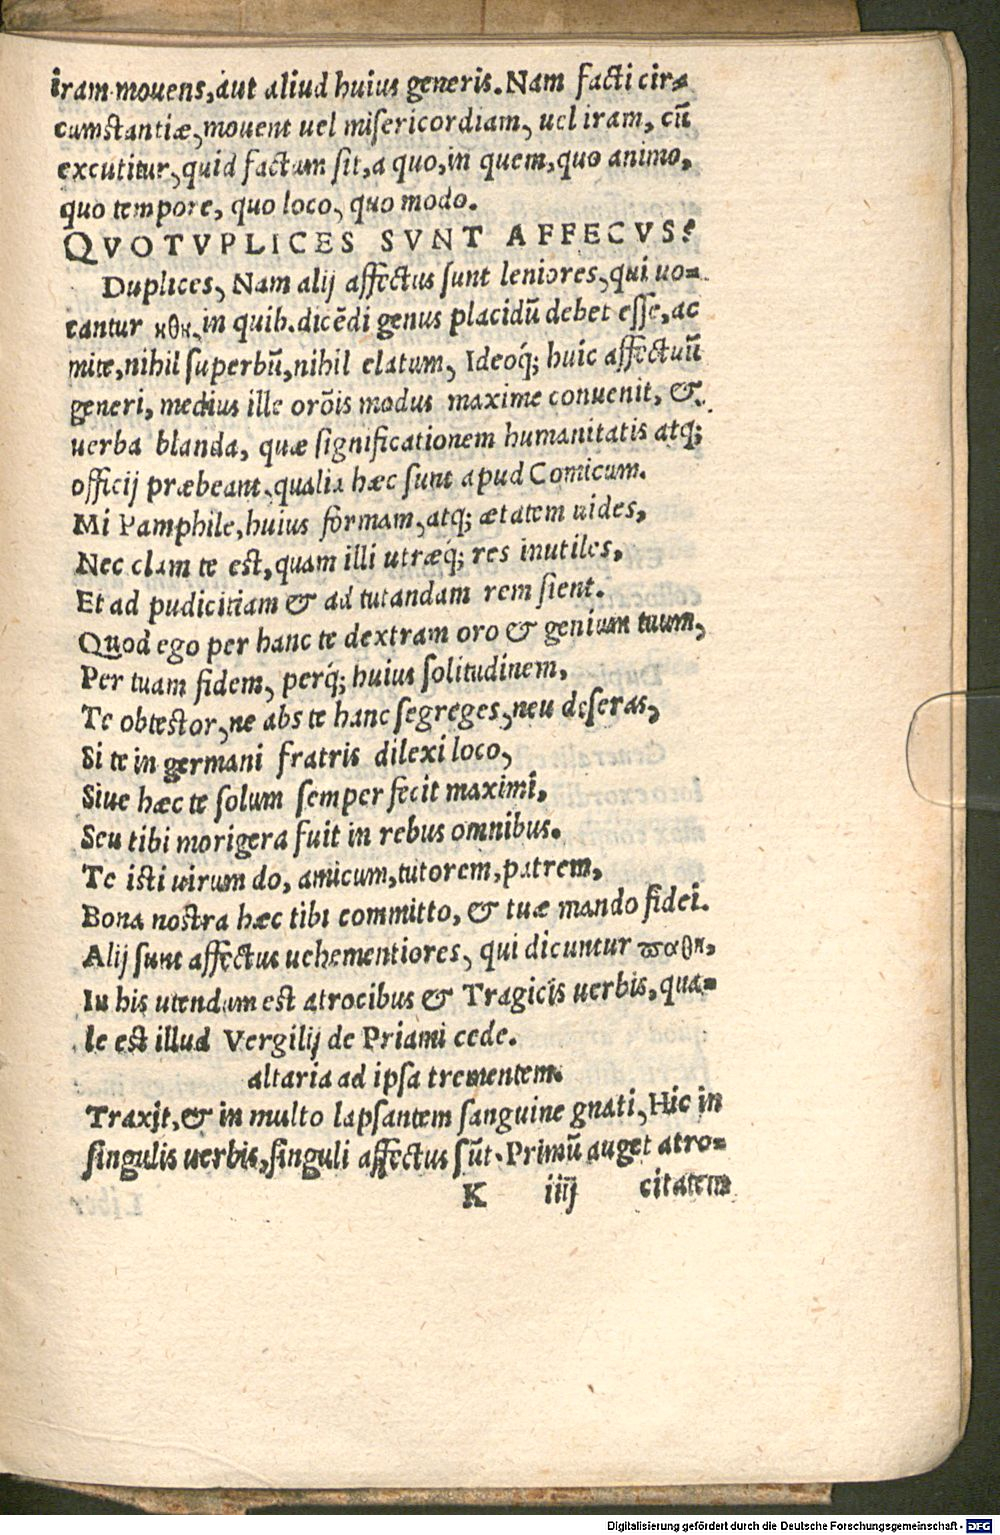 iram mouens, aut aliud huius generis. Nam facti cir⸗
cumstantiæ, mouent uel misericordiam, uel iram, cũ
excutitur, quid factum sit, a quo, in quem, quo animo,
quo tempore, quo loco, quo modo.
QVOTVPLICES SVNT AFFECVS?
Duplices, Nam alij affectus sunt leniores, qui uo⸗
cantur ηθη, in quib. dicẽdi genus placidũ debet esse, ac
mite, nihil superbũ, nihil elatum, Ideoq́; huic affectuũ
generi, medius ille orõis modus maxime conuenit, &
uerba blanda, quæ significationem humanitatis atq;
officij præbeant, qualia hæc sunt apud Comicum.
Mi Pamphile, huius formam, atq; ætatem uides,
Nec clam te est, quam illi utræq́; res inutiles,
Et ad pudicitiam & ad tutandam rem sient.
Quod ego per hanc te dextram oro & genium tuum,
Per tuam fidem, perq́; huius solitudinem,
Te obtestor, ne abs te hanc segreges, neu deseras,
Si te in germani fratris dilexi loco,
Siue hæc te solum semper fecit maximi,
Seu tibi morigera fuit in rebus omnibus.
Te isti uirum do, amicum, tutorem, patrem,
Bona nostra hæc tibi committo, & tuæ mando fidei.
Alij sunt affectus uehementiores, qui dicuntur ϖαθη,
In his utendum est atrocibus & Tragicis uerbis, qua⸗
le est illud Vergilij de Priami cede.
altaria ad ipsa trementem.
Traxit, & in multo lapsantem sanguine gnati, Hic in
singulis uerbis, singuli affectus sũt. Primũ auget atro⸗
K iiij citatem
Digitalisierung gefördert durch die Deutsche Forschungsgemeinschaft - DFG